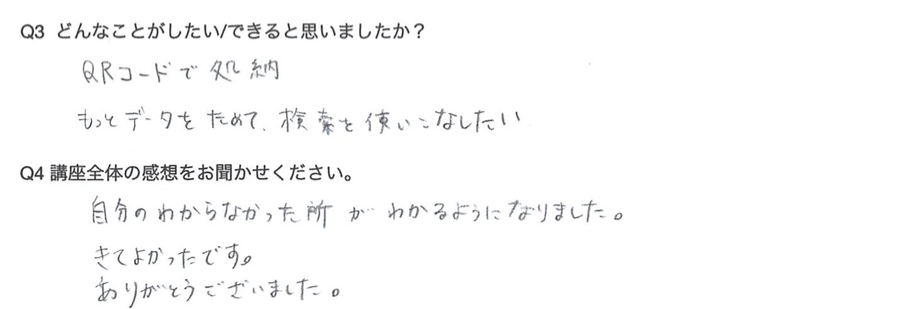 Q3 どんなことがしたい/できると思いましたか？
QRコードで処納
もっとデータをためて、検索を使いこなしたい
Q4 講座全体の感想をお聞かせください。
自分のわからなかった所がわかるようになりました。
きてよかったです。
ありがとうございました。